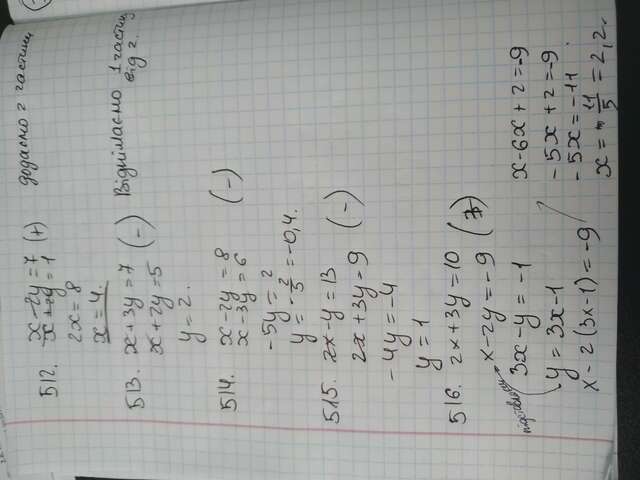 512. x-2y=7 (+) додаємо 2 частини
x+2y=1
2x=8
x=4.
513. x+3y=7 (-) Віднімаємо 1 частину
x+2y=5 від 2.
y=2.
514. x-2y=8 (-)
x-3y=6
-5y=2
y=-2/5=-0,4.
515. 2x-y=13 (-)
2x+3y=9
-4y=-4
y=1
516. 2x+3y=10
x-2y=-9
3x-y=-1
y=3x-1
x-2(3x-1)=-9
x-6x+2=-9
-5x+2=-9
-5x=-11
x=11/5=2,2.